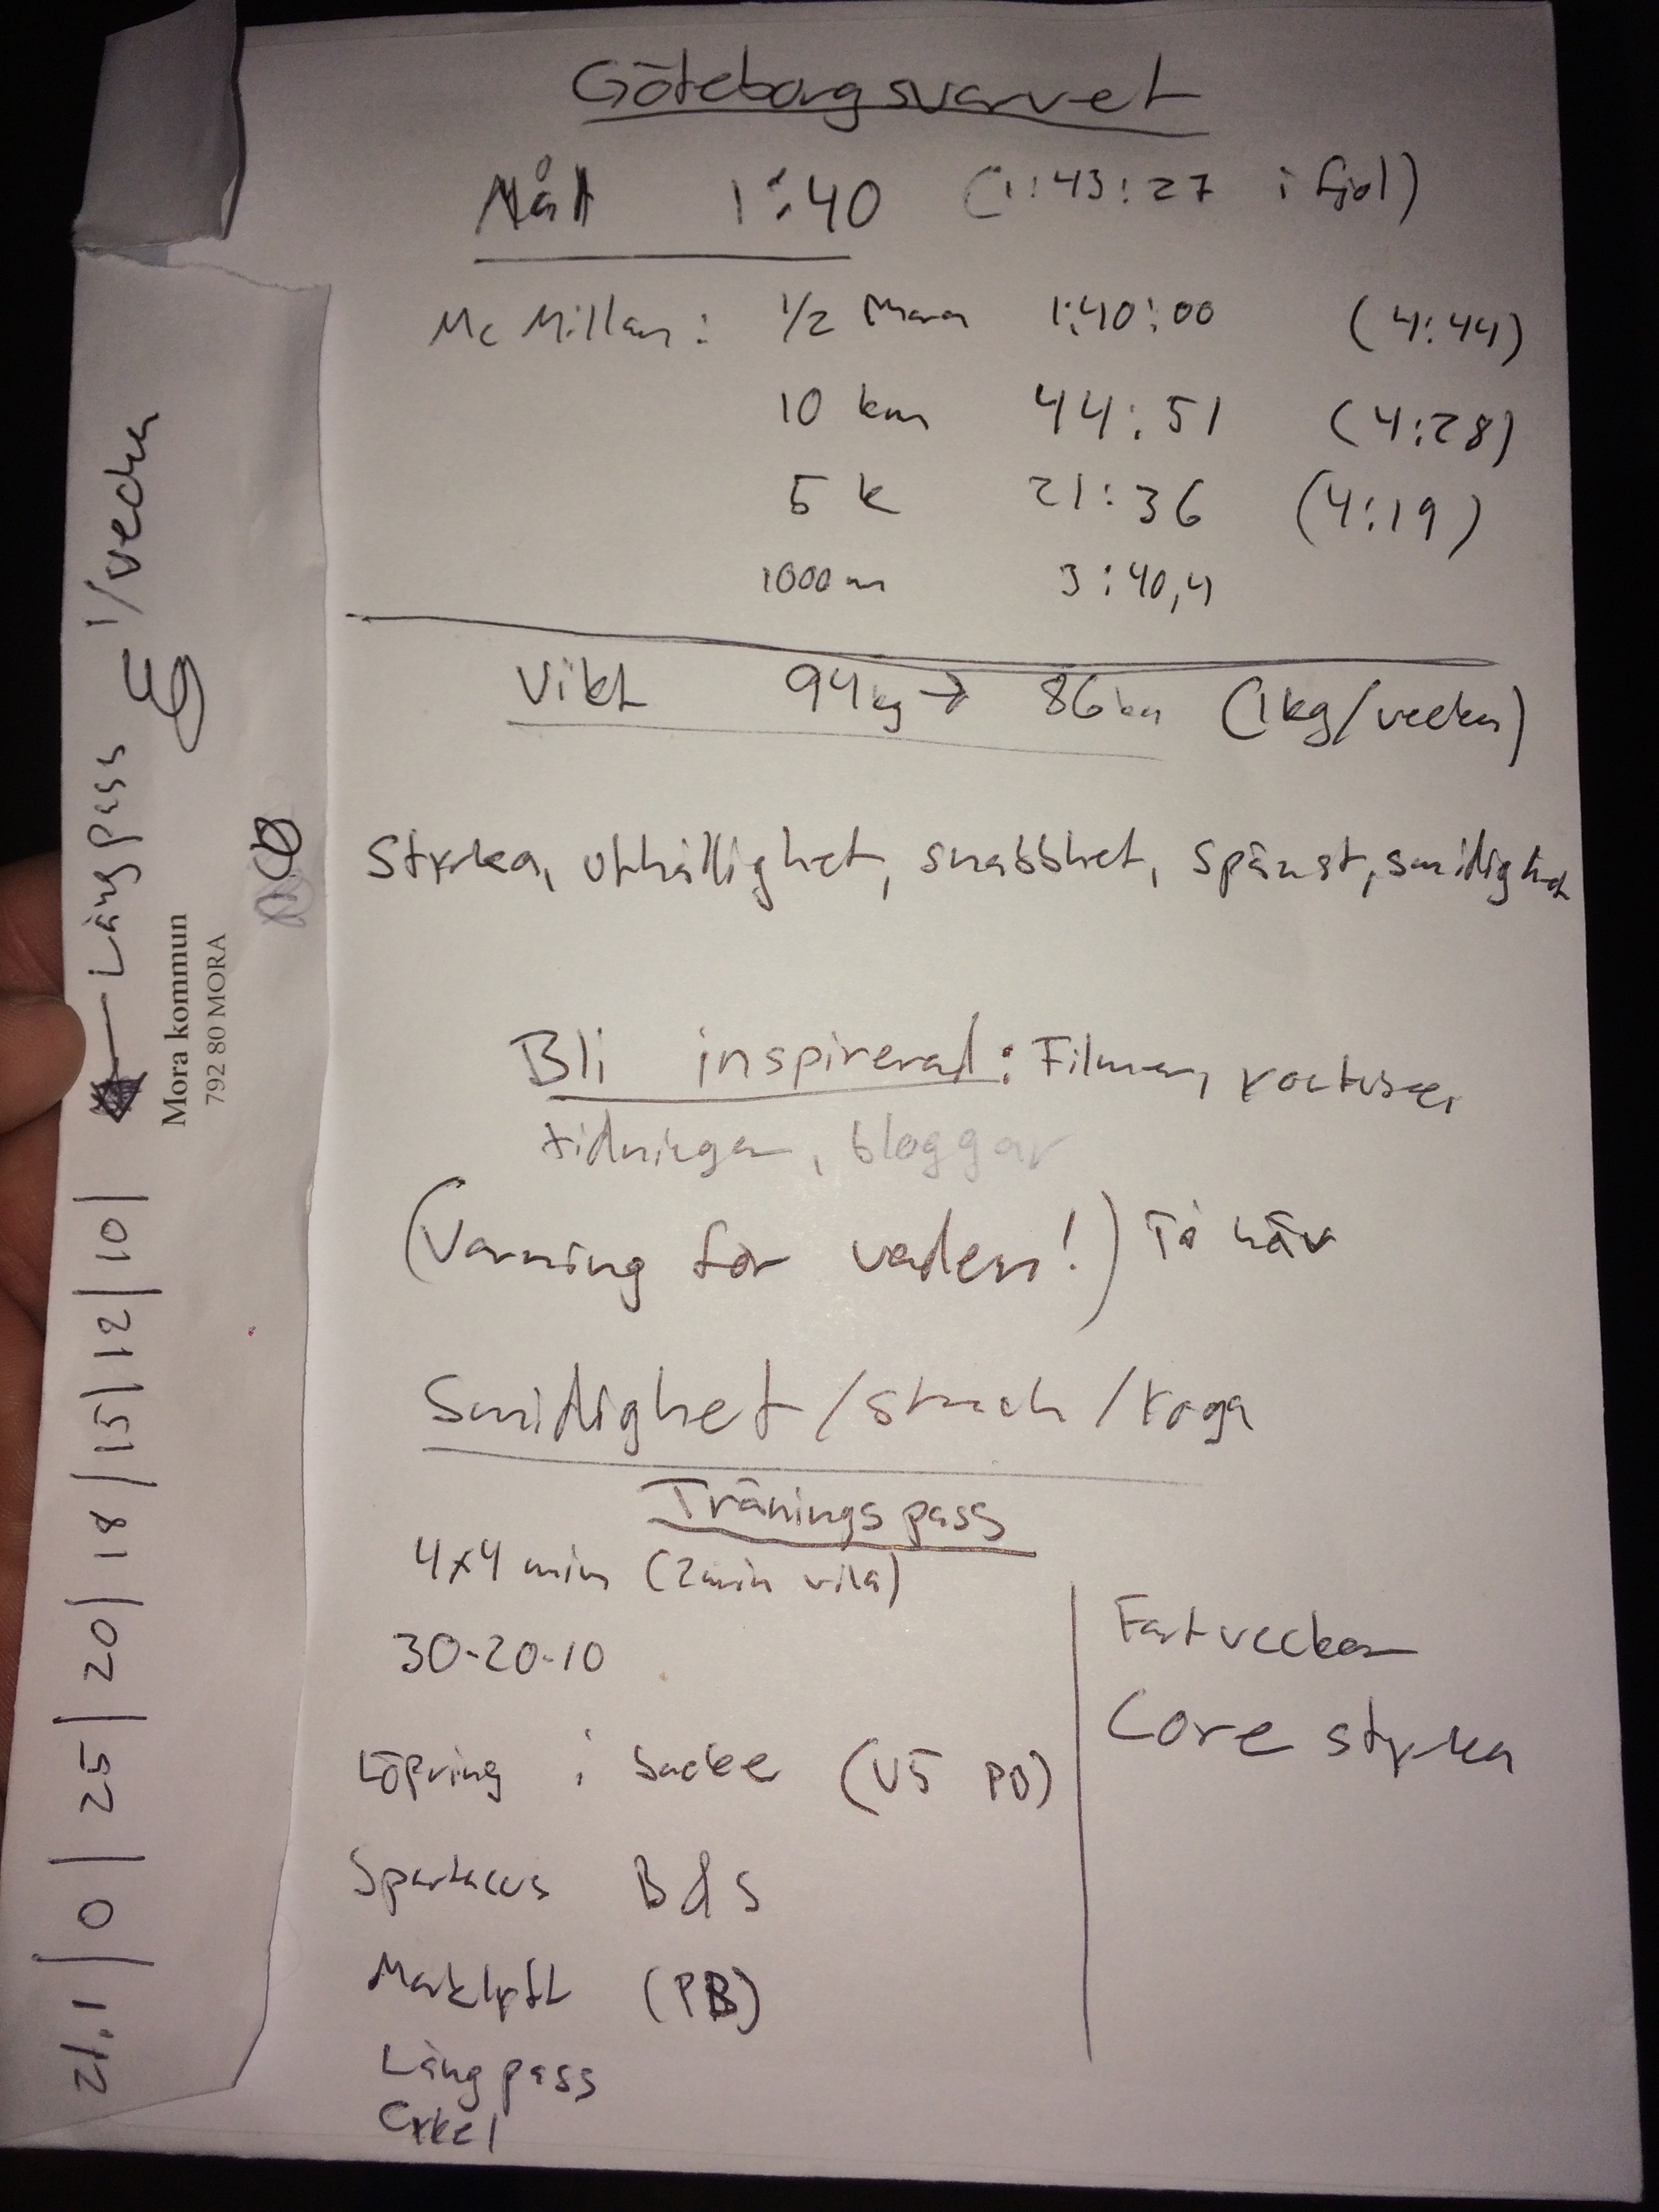 Göteborgsvarvet
Mål 1:40 (1:43:27 i fjol)
McMillan: 1/2 Mara 1:40:00 (4:44)
10 km 44:51 (4:28)
5 k 21:36 (4:19)
1000 m 3:40,4
Vikt 94 kg → 86 kg (1 kg/vecka)
Styrka, uthållighet, snabbhet, spänst, smidighet
Bli inspirerad: Filmer,
tidningar, bloggar
(Varning för vaden!) Tå häv
Smidighet/stretch/Yoga
Träningspass
4x4 min (2 min vila)
30-20-10
Löpning i backe (V5 PD)
Spartacus B&S
Marklyft (PB)
Långpass
Cykel
Fartveckan
Core styrka
21.1 | 0 | 25 | 20 | 18 | 15 | 12 | 10 | ← Långpass 1/vecka
Mora kommun
792 80 MORA